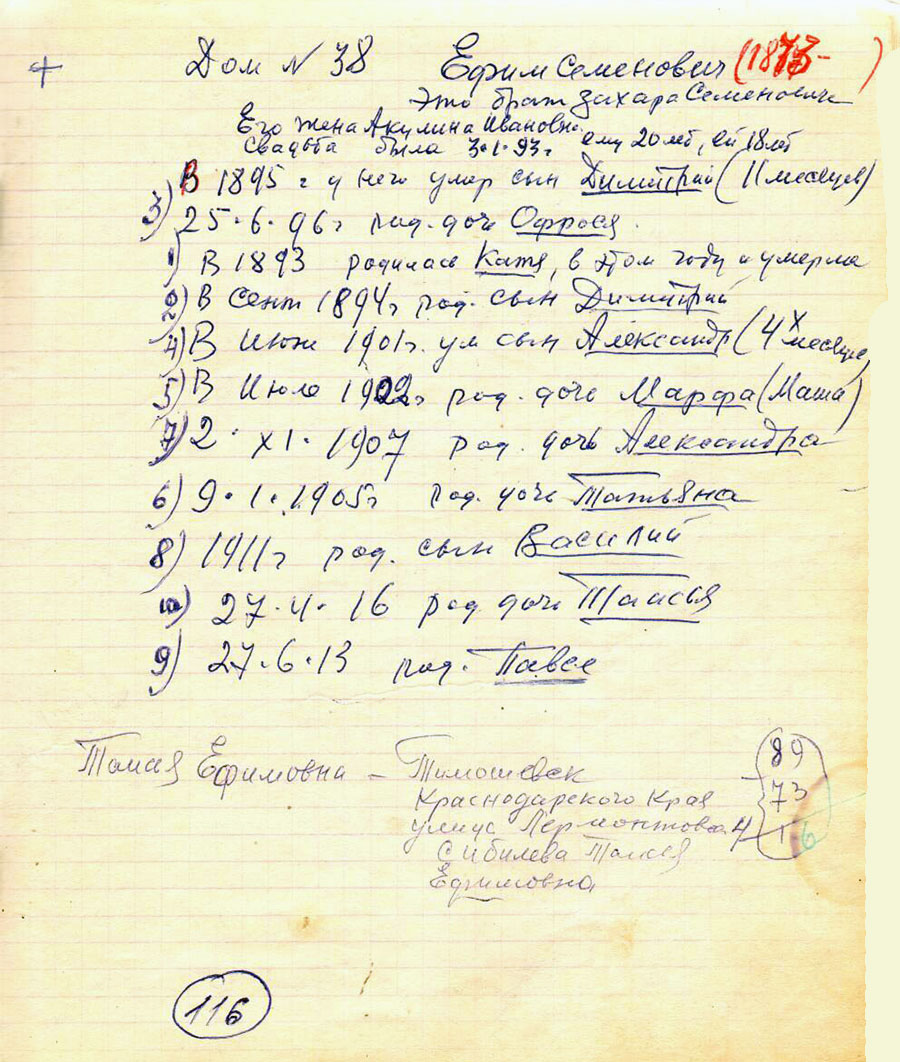 + Дом № 38 Ефим Семенович (1873- )
Это брат Захара Семеновича
Его жена Акулина Ивановна
Свадьба была 3·1·93г. ему 20 лет, ей 18 лет
3) В 1895 г у него умер сын Димитрий (11 месяцев)
25·6·96г род. дочь Офрося.
1) В 1893 родилась Катя, в этом году и умерла
2) В сент 1894г род. сын Димитрий
4) В Июне 1901г. ум сын Александр (4х месяцев
5) В Июле 1902г род. дочь Марфа (Маша)
7) 2·XI·1907 род. дочь Александра
6) 9·1·1905г род. дочь Татьяна
8) 1911г род. сын Василий
27·4·16 род дочь Таисья
9) 27·6·13 род. Павел
Таися Ефимовна – Тимошевск
Краснодарского Края
улица Лермонтова 4
Сибилева Таися
Ефимовна
89
73
16
116